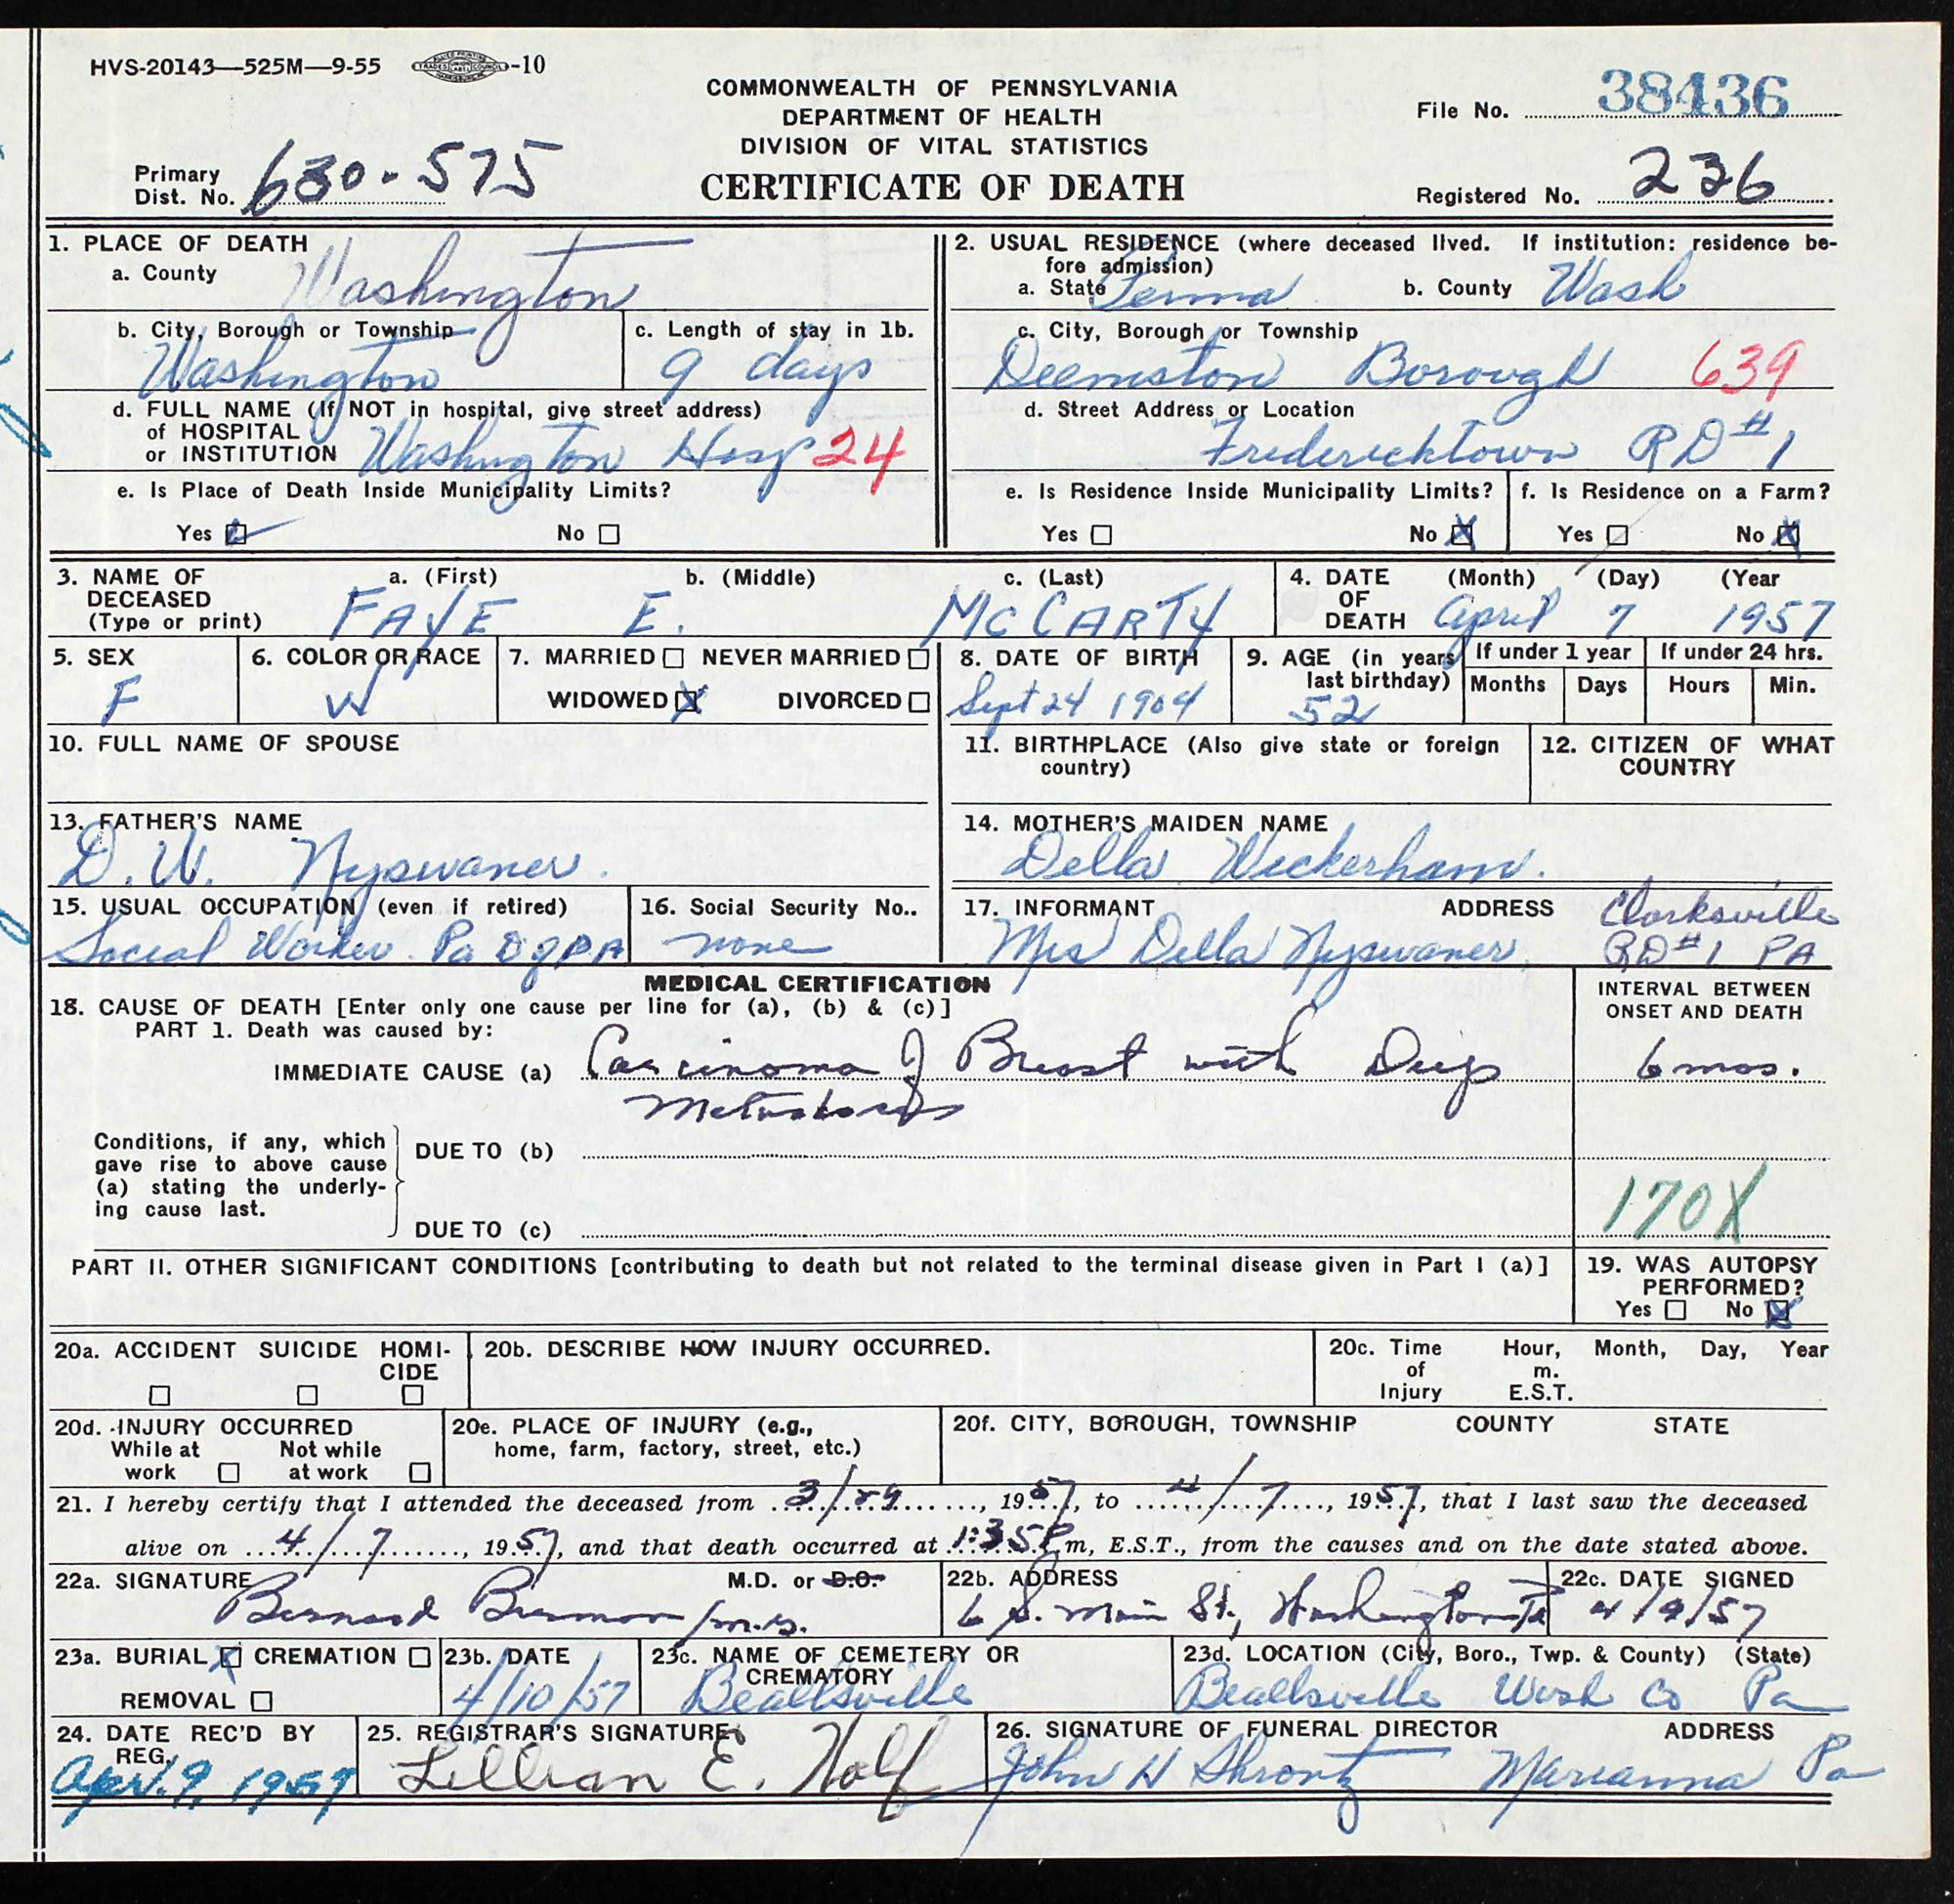 HVS-20143—525M—9-55 -10
COMMONWEALTH OF PENNSYLVANIA
DEPARTMENT OF HEALTH
DIVISION OF VITAL STATISTICS
CERTIFICATE OF DEATH
File No. 38436
Primary Dist. No. 630-575
Registered No. 236
1. PLACE OF DEATH
a. County Washington
b. City, Borough or Township
Washington
c. Length of stay in 1b.
9 days
d. FULL NAME (If NOT in hospital, give street address)
of HOSPITAL
or INSTITUTION Washington Hosp 24
e. Is Place of Death Inside Municipality Limits?
Yes No
2. USUAL RESIDENCE (where deceased lived. If institution: residence be-
fore admission)
a. State Penna b. County Wash
c. City, Borough or Township
Deemston Borough 639
d. Street Address or Location
Fredericktown RD #1
e. Is Residence Inside Municipality Limits?
Yes No X
f. Is Residence on a Farm?
Yes No X
3. NAME OF
DECEASED
(Type or print)
a. (First) b. (Middle) c. (Last)
FAYE E. McCARTY
4. DATE
OF
DEATH
(Month) (Day) (Year
April 7 1957
5. SEX
F
6. COLOR OR RACE
W
7. MARRIED NEVER MARRIED
WIDOWED X DIVORCED
8. DATE OF BIRTH
Sept 24 1904
9. AGE (in years
last birthday)
52
If under 1 year
Months Days
If under 24 hrs.
Hours Min.
10. FULL NAME OF SPOUSE
11. BIRTHPLACE (Also give state or foreign
country)
12. CITIZEN OF WHAT
COUNTRY
13. FATHER'S NAME
D. W. Nyswaner.
14. MOTHER'S MAIDEN NAME
Della Wickerham.
15. USUAL OCCUPATION (even if retired)
Social Worker Pa D of P A
16. Social Security No..
none
17. INFORMANT ADDRESS
Mrs Della Nyswaner, Clarksville
RD #1 PA
MEDICAL CERTIFICATION
18. CAUSE OF DEATH [Enter only one cause per line for (a), (b) & (c)]
PART 1. Death was caused by:
INTERVAL BETWEEN
ONSET AND DEATH
IMMEDIATE CAUSE (a) Carcinoma of Breast with Deep 6 mos.
Metastasis
Conditions, if any, which
gave rise to above cause
(a) stating the underly-
ing cause last.
DUE TO (b)
DUE TO (c)
170X
PART II. OTHER SIGNIFICANT CONDITIONS [contributing to death but not related to the terminal disease given in Part I (a)]
19. WAS AUTOPSY
PERFORMED?
Yes No X
20a. ACCIDENT SUICIDE HOMI-
CIDE
20b. DESCRIBE HOW INJURY OCCURRED.
20c. Time
of
Injury
Hour,
m.
E.S.T.
Month, Day, Year
20d. INJURY OCCURRED
While at
work
Not while
at work
20e. PLACE OF INJURY (e.g.,
home, farm, factory, street, etc.)
20f. CITY, BOROUGH, TOWNSHIP COUNTY STATE
21. I hereby certify that I attended the deceased from 3/29, 1957, to 4/7, 1957, that I last saw the deceased
alive on 4/7, 1957, and that death occurred at 1:35 P m, E.S.T., from the causes and on the date stated above.
22a. SIGNATURE M.D. or D.O.
Bernard Berman M.D.
22b. ADDRESS
6 S. Main St., Washington Pa
22c. DATE SIGNED
4/9/57
23a. BURIAL X CREMATION
REMOVAL
23b. DATE
4/10/57
23c. NAME OF CEMETERY OR
CREMATORY
Beallsville
23d. LOCATION (City, Boro., Twp. & County) (State)
Beallsville Wash Co Pa
24. DATE REC'D BY
REG.
Apr. 9, 1957
25. REGISTRAR'S SIGNATURE
Lillian E. Nolf
26. SIGNATURE OF FUNERAL DIRECTOR ADDRESS
John H Shrontz Marianna Pa